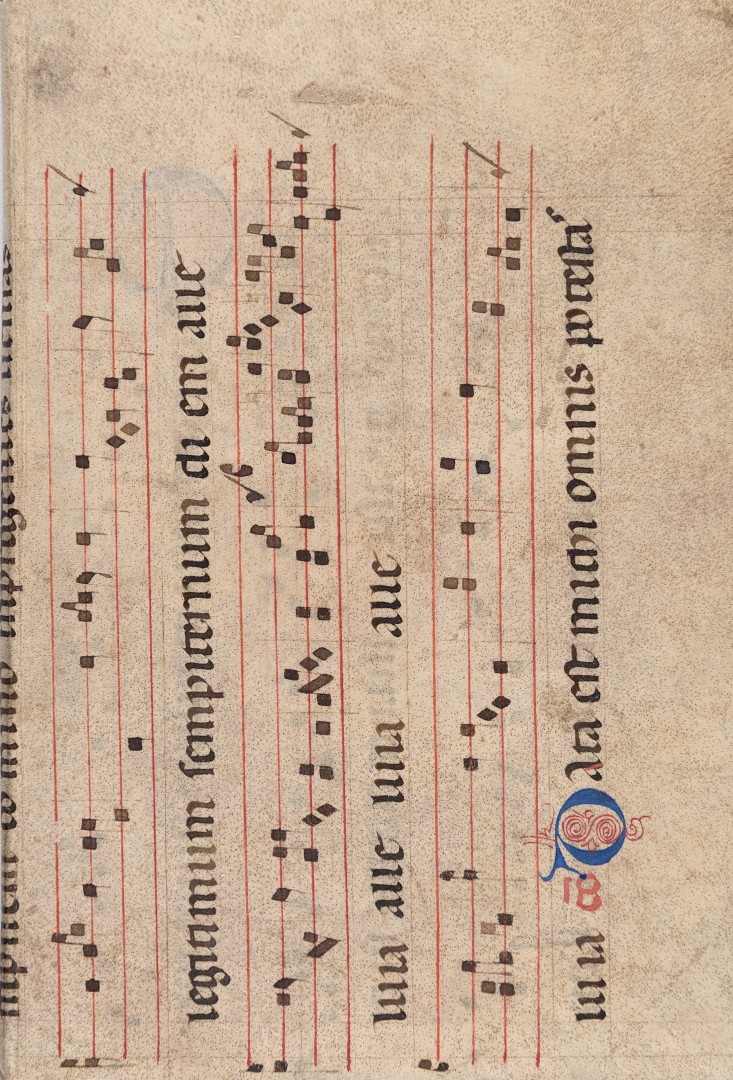 legitimum sempiternum di em alle
luia alle luia alle
lu ia Data est michi omnis potesta